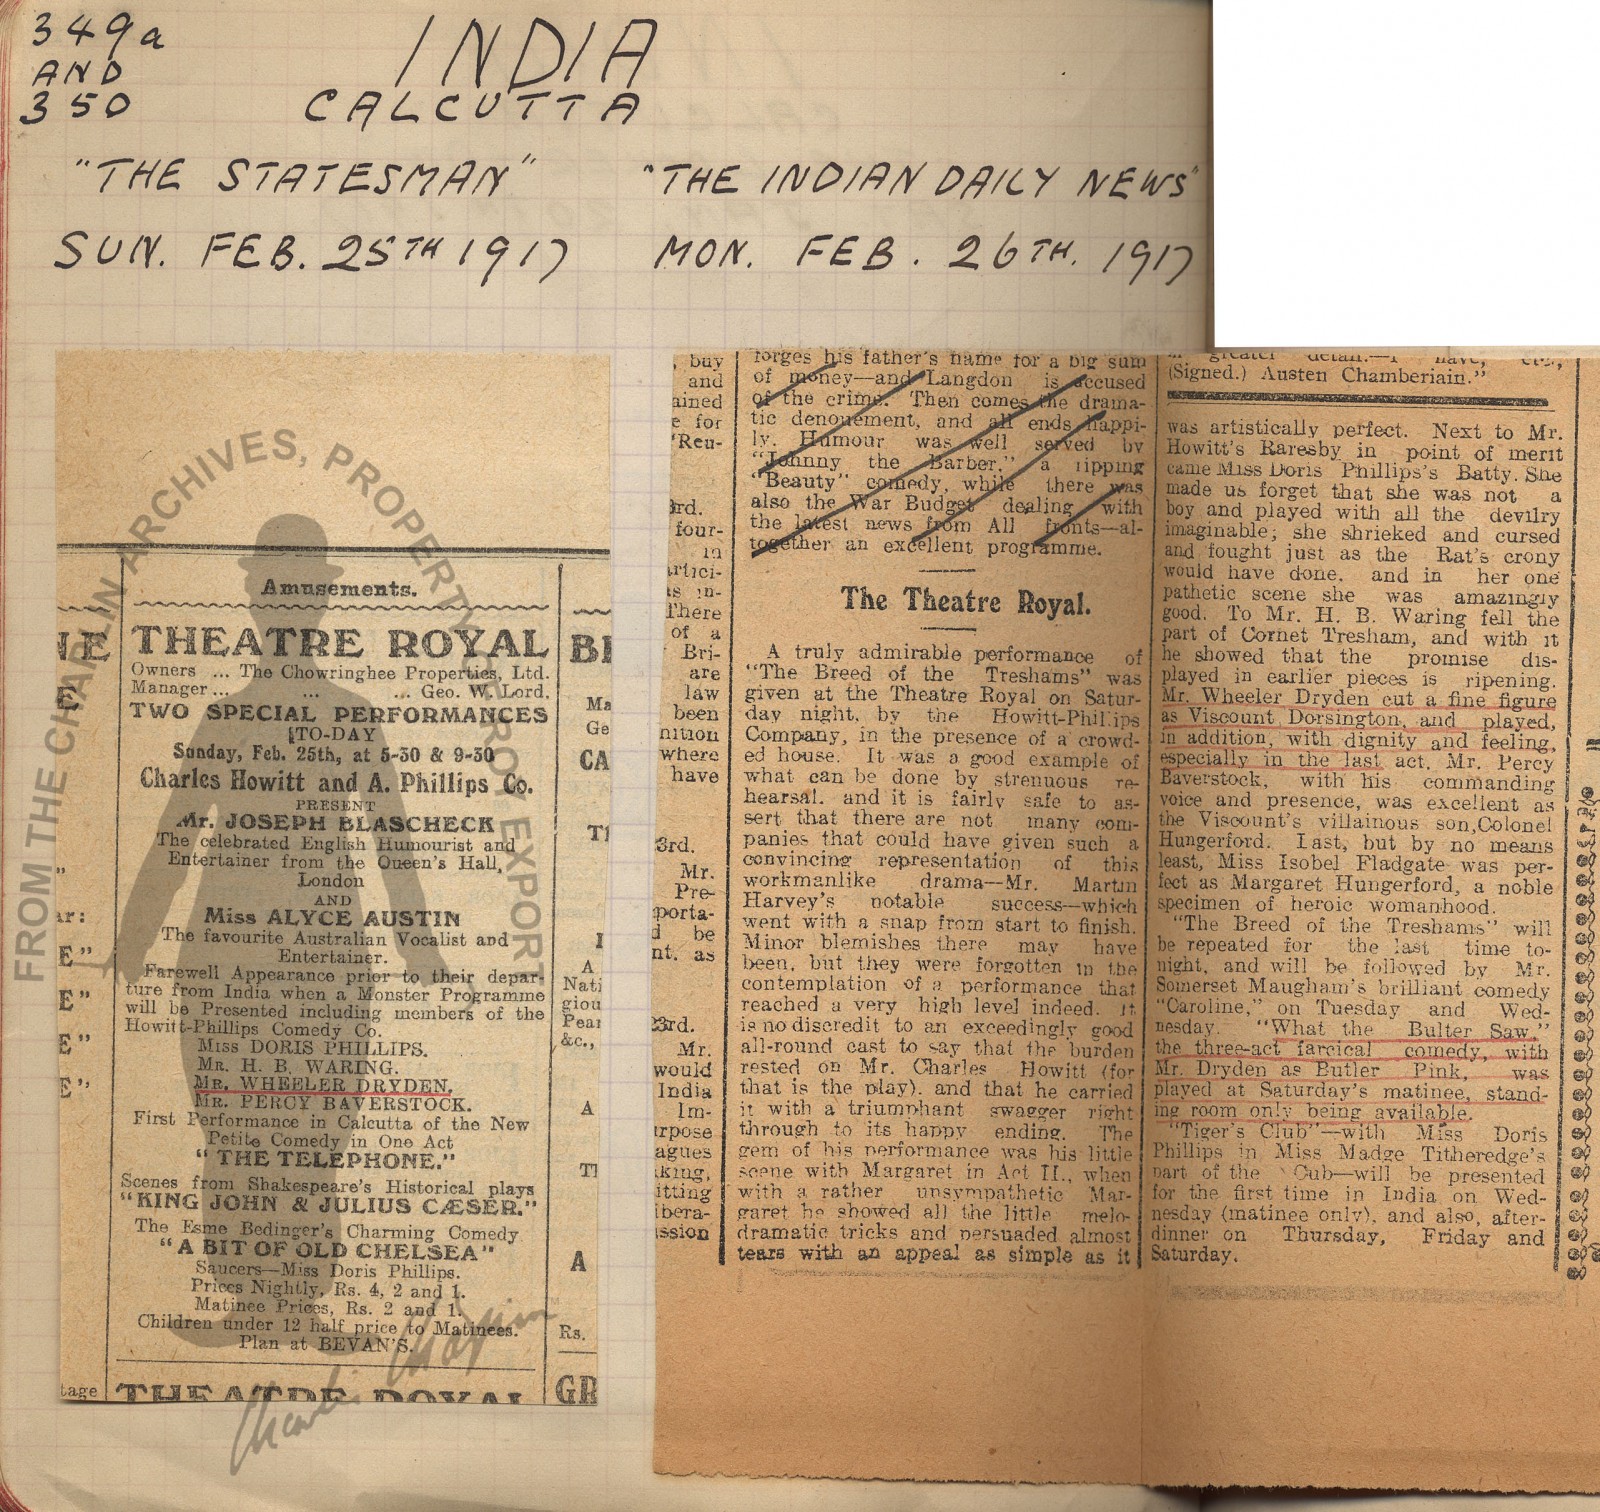 349a
AND
350
INDIA
CALCUTTA
"THE STATESMAN"
SUN. FEB. 25TH 1917
"THE INDIAN DAILY NEWS"
MON. FEB. 26TH. 1917
FROM THE CHAPLIN ARCHIVES, PROPERTY OF ROY EXPORT
Amusements.
THEATRE ROYAL
Owners ... The Chowringhee Properties, Ltd.
Manager... ... ... Geo. W. Lord.
TWO SPECIAL PERFORMANCES
TO-DAY
Sunday, Feb. 25th, at 5-30 & 9-30
Charles Howitt and A. Phillips Co.
PRESENT
Mr. JOSEPH BLASCHECK
The celebrated English Humourist and
Entertainer from the Queen's Hall,
London
AND
Miss ALYCE AUSTIN
The favourite Australian Vocalist and
Entertainer.
Farewell Appearance prior to their depar-
ture from India when a Monster Programme
will be Presented including members of the
Howitt-Phillips Comedy Co.
MISS DORIS PHILLIPS.
MR. H. B. WARING.
MR. WHEELER DRYDEN.
MR. PERCY BAVERSTOCK.
First Performance in Calcutta of the New
Petite Comedy in One Act
"THE TELEPHONE."
Scenes from Shakespeare's Historical plays
"KING JOHN & JULIUS CÆSER."
The Esme Bedinger's Charming Comedy
"A BIT OF OLD CHELSEA"
Saucers—Miss Doris Phillips.
Prices Nightly, Rs. 4, 2 and 1.
Matinee Prices, Rs. 2 and 1.
Children under 12 half price to Matinees.
Plan at BEVAN'S.
THEATRE ROYAL
Charlie Chaplin
forges his father's name for a big sum
of money—and Langdon is accused
of the crime. Then comes the drama-
tic denouement, and all ends happi-
ly. Humour was well served by
"Johnny the Barber," a ripping
"Beauty" comedy, while there was
also the War Budget dealing with
the latest news from All fronts—al-
together an excellent programme.
The Theatre Royal.
A truly admirable performance of
"The Breed of the Treshams" was
given at the Theatre Royal on Satur-
day night, by the Howitt-Phillips
Company, in the presence of a crowd-
ed house. It was a good example of
what can be done by strenuous re-
hearsal, and it is fairly safe to as-
sert that there are not many com-
panies that could have given such a
convincing representation of this
workmanlike drama—Mr. Martin
Harvey's notable success—which
went with a snap from start to finish.
Minor blemishes there may have
been, but they were forgotten in the
contemplation of a performance that
reached a very high level indeed. It
is no discredit to an exceedingly good
all-round cast to say that the burden
rested on Mr. Charles Howitt (for
that is the play), and that he carried
it with a triumphant swagger right
through to its happy ending. The
gem of his performance was his little
scene with Margaret in Act II., when
with a rather unsympathetic Mar-
garet he showed all the little melo-
dramatic tricks and persuaded almost
tears with an appeal as simple as it
in greater detail.—I have, etc.,
(Signed.) Austen Chamberlain."
was artistically perfect. Next to Mr.
Howitt's Raresby in point of merit
came Miss Doris Phillips's Batty. She
made us forget that she was not a
boy and played with all the devilry
imaginable; she shrieked and cursed
and fought just as the Rat's crony
would have done, and in her one
pathetic scene she was amazingly
good. To Mr. H. B. Waring fell the
part of Cornet Tresham, and with it
he showed that the promise dis-
played in earlier pieces is ripening.
Mr. Wheeler Dryden cut a fine figure
as Viscount Dorsington, and played,
in addition, with dignity and feeling,
especially in the last act. Mr. Percy
Baverstock, with his commanding
voice and presence, was excellent as
the Viscount's villainous son, Colonel
Hungerford. Last, but by no means
least, Miss Isobel Fladgate was per-
fect as Margaret Hungerford, a noble
specimen of heroic womanhood.
"The Breed of the Treshams" will
be repeated for the last time to-
night, and will be followed by Mr.
Somerset Maugham's brilliant comedy
"Caroline," on Tuesday and Wed-
nesday. "What the Bulter Saw,"
the three-act farcical comedy, with
Mr. Dryden as Butler Pink, was
played at Saturday's matinee, stand-
ing room only being available.
"Tiger's Club"—with Miss Doris
Phillips in Miss Madge Titheredge's
part of the Cub—will be presented
for the first time in India on Wed-
nesday (matinee only), and also, after-
dinner on Thursday, Friday and
Saturday.